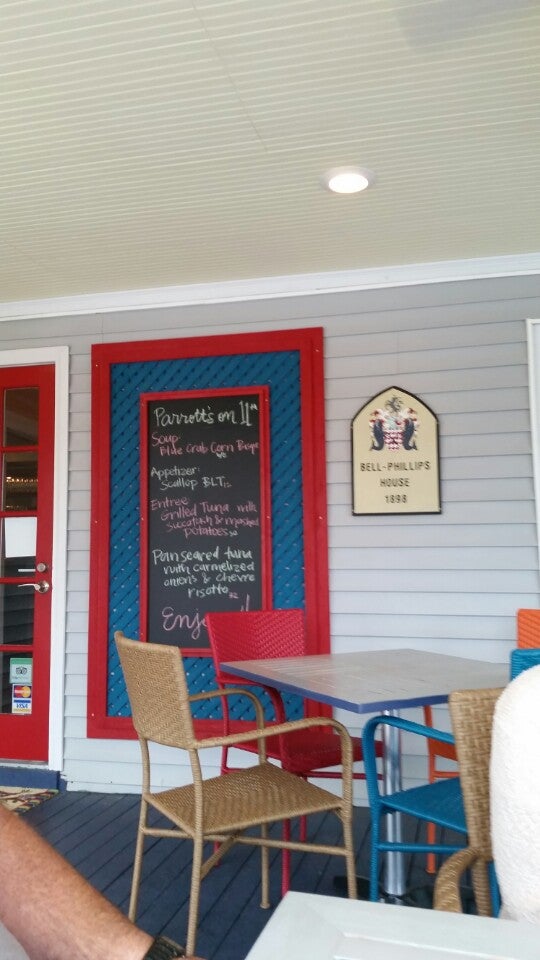 Parrott's on 11th
Soup:
Blue Crab Corn Bisque
Appetizer:
Scallop BLT
Entree
Grilled Tuna with
succotash & mashed
potatoes
Pan seared tuna
with carmelized
onions & chevre
risotto 32
Enjoy!
BELL-PHILLIPS
HOUSE
1898
VISA